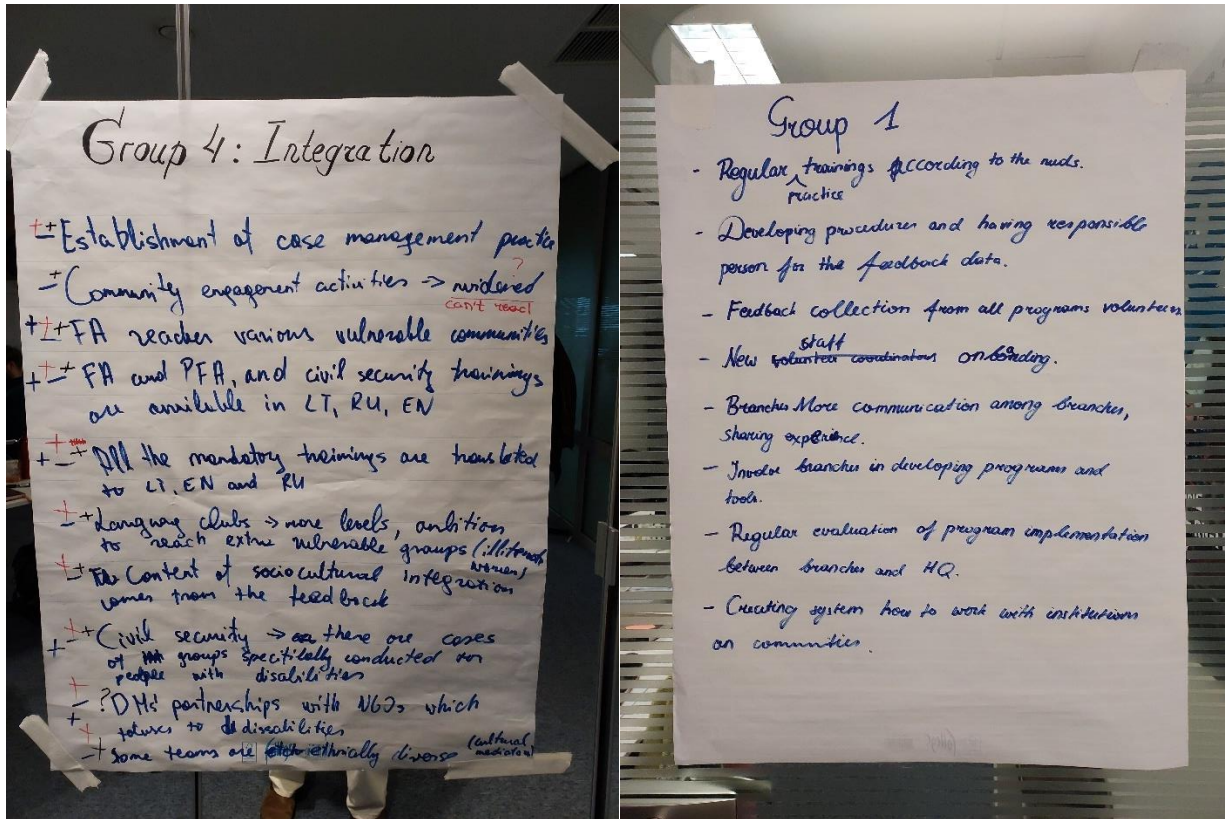 Group 4: Integration
++- Establishment of case management practice
+- Community engagement activities -> widered
?
can't read
+++- FA reaches various vulnerable communities
+++- FA and PFA, and civil security trainings
are available in LT, RU, EN
+++- All the mandatory trainings are translated
to LT, EN and RU
++- Language clubs -> more levels, ambition
to reach extra vulnerable groups (illiterate
women)
++- Content of sociocultural integration
comes from the feedback
+++- Civil security -> there are cases
of groups specifically conducted for
people with disabilities
++- ? DMs partnerships with NGOs which
focuses to disabilities
++- Some teams are ethnically diverse (cultural
mediators)
Group 1
- Regular trainings According to the nuds.
practice
- Developing procedures and having responsible
person for the feedback data.
- Feedback collection from all programs volunteers
staff
- New volunteer coordinators onboarding.
- Branches More communication among branches,
sharing experience.
- Involve branches in developing programs and
tools.
- Regular evaluation of program implementation
between branches and HQ.
- Creating system how to work with institutions
on communities.